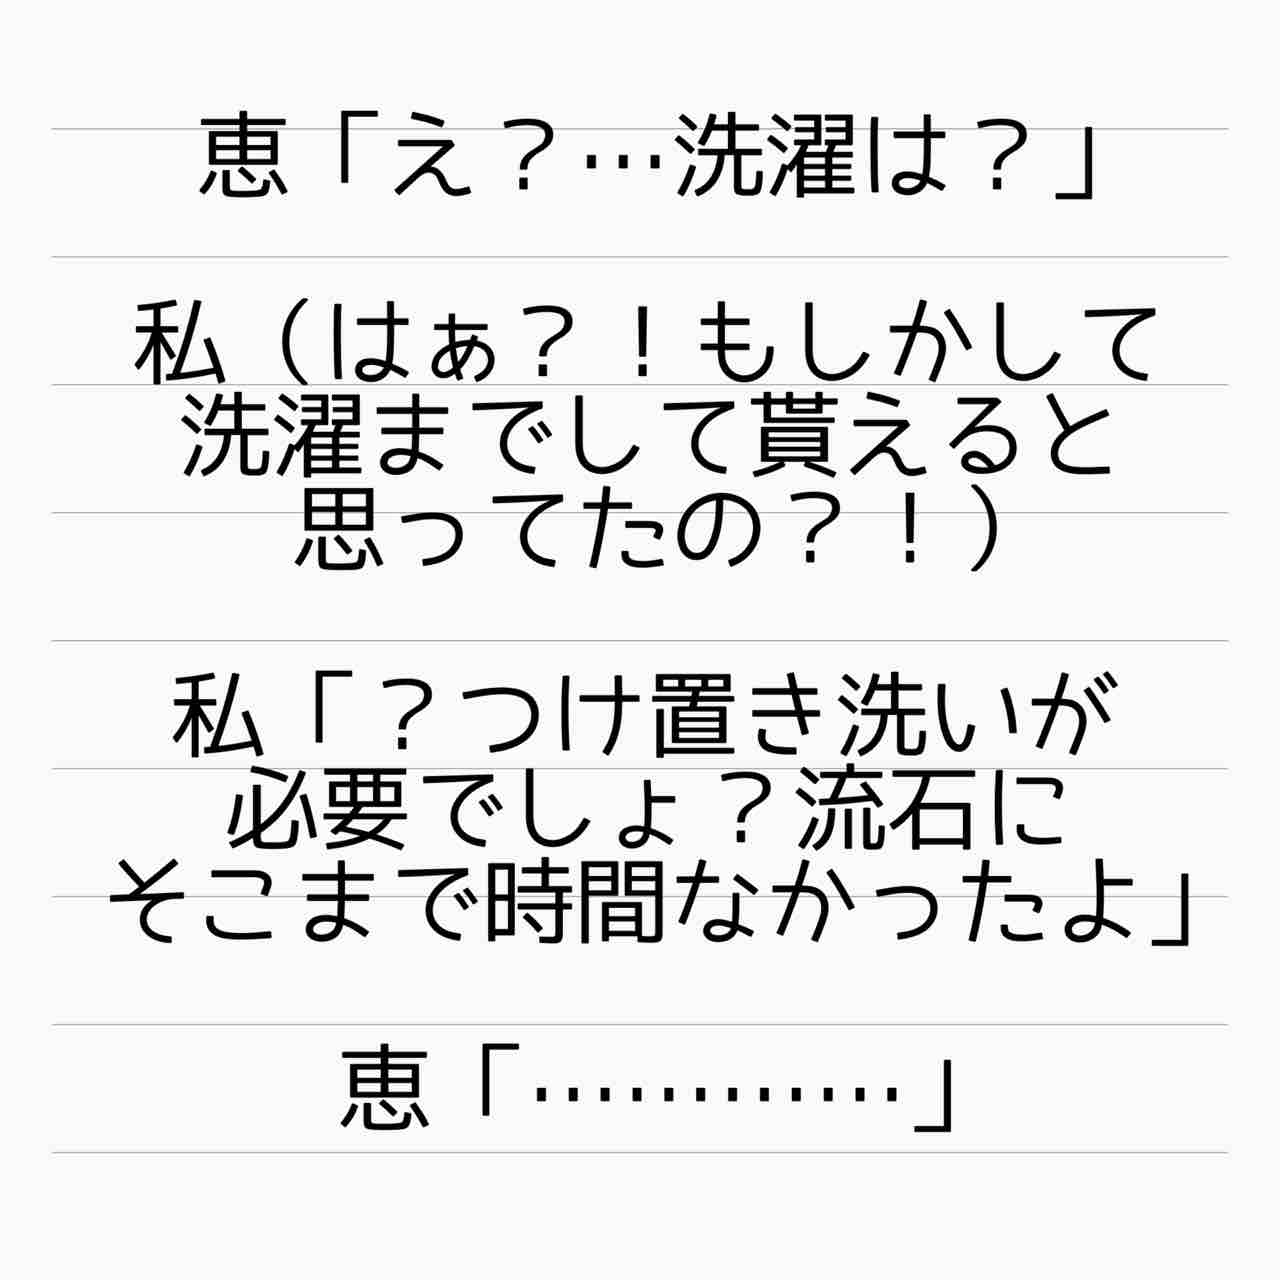 恵「え？…洗濯は？」
私（はぁ？！もしかして
洗濯までして貰えると
思ってたの？！）
私「？つけ置き洗いが
必要でしょ？流石に
そこまで時間なかったよ」
恵「…………」